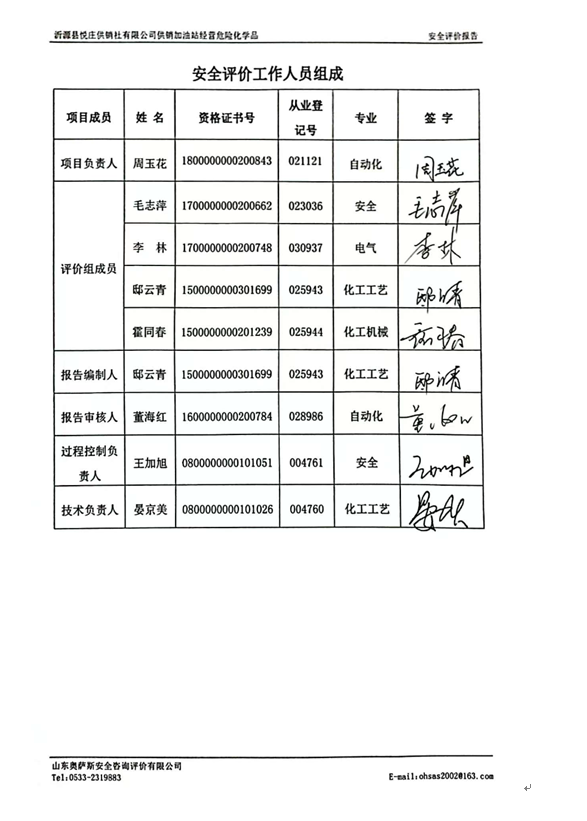 沂源县悦庄供销社有限公司供销加油站经营危险化学品 安全评价报告
安全评价工作人员组成
项目成员 姓 名 资格证书号 从业登记号 专业 签 字
项目负责人 周玉花 1800000000200843 021121 自动化 周玉花
评价组成员 毛志萍 1700000000200662 023036 安全 毛志萍
李 林 1700000000200748 030937 电气 李林
邸云青 1500000000301699 025943 化工工艺
霍同春 1500000000201239 025944 化工机械
报告编制人 邸云青 1500000000301699 025943 化工工艺
报告审核人 董海红 1600000000200784 028986 自动化
过程控制负责人 王加旭 0800000000101051 004761 安全
技术负责人 晏京美 0800000000101026 004760 化工工艺
山东奥萨斯安全咨询评价有限公司
Tel:0533-2319883 E-mail:ohsas2002@163.com